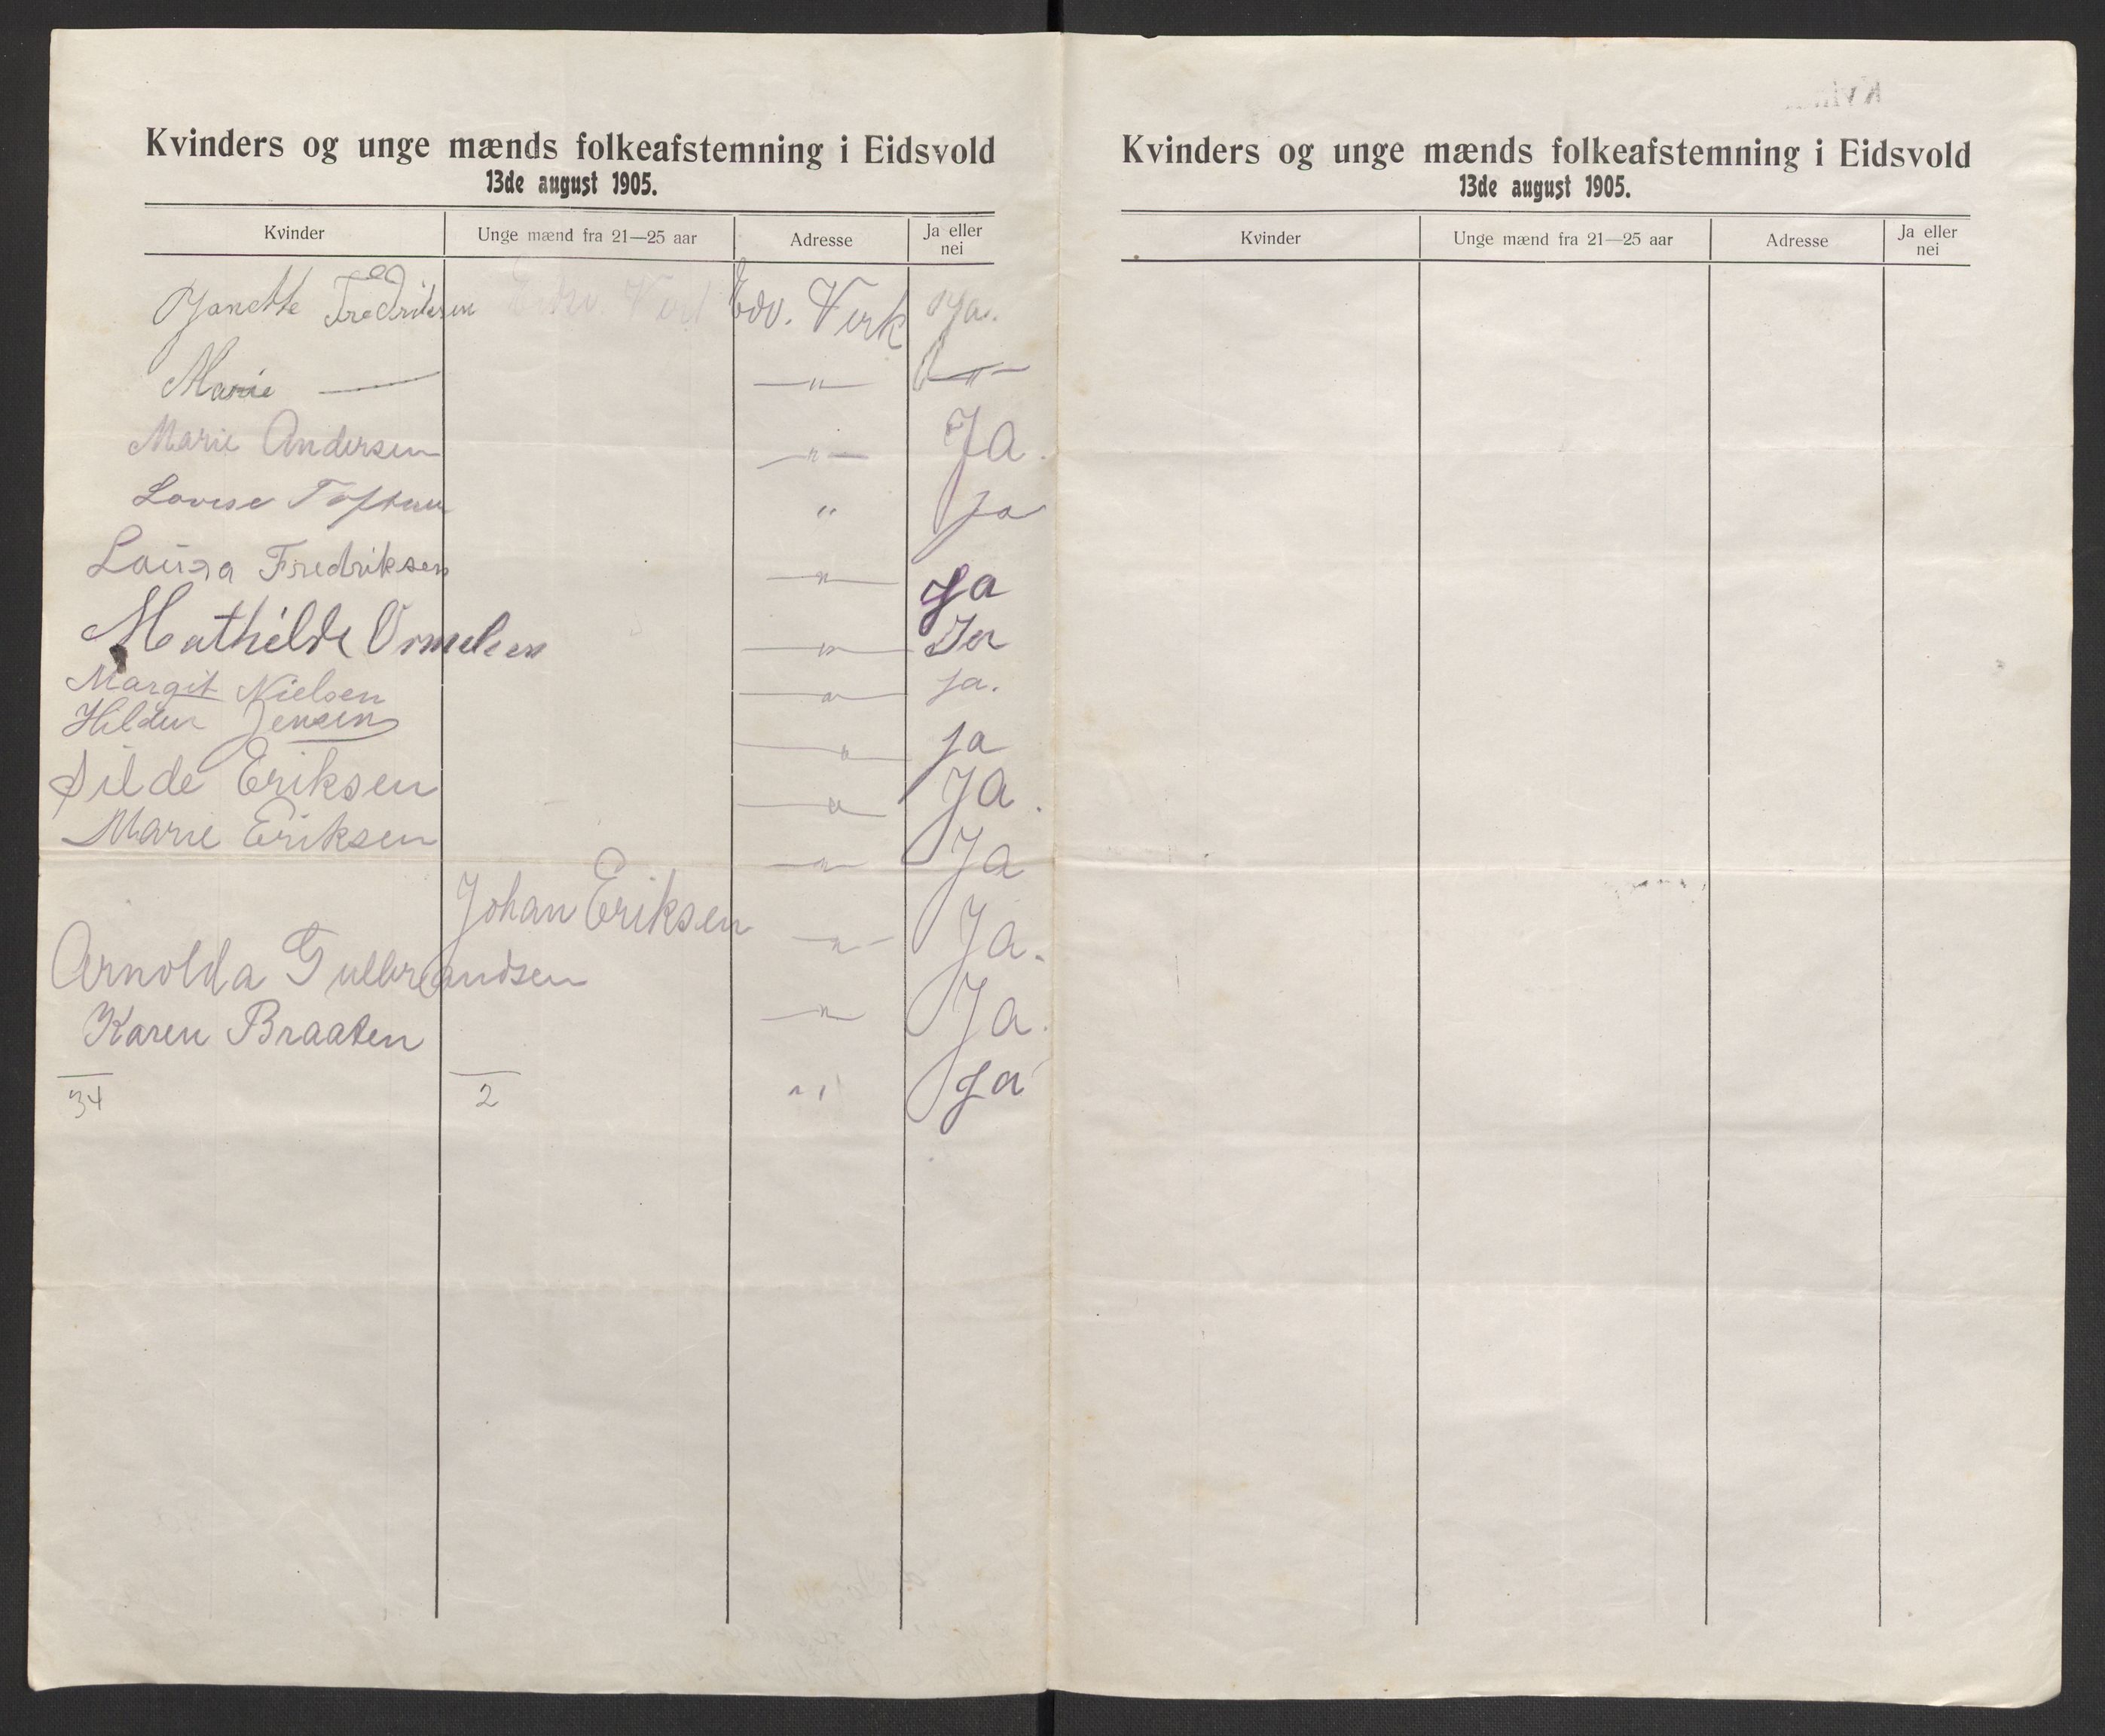 Kvinders og unge mænds folkeafstemning i Eidsvold
13de august 1905.
Kvinder Unge mænd fra 21—25 aar Adresse Ja eller nei
Janette Fredriksen Edv. Verk Ja.
Marie — —"— —"—
Marie Andersen —"— Ja.
Lovise " Ja
Laura Fredriksen —"— Ja
Mathilde —"— Ja
Margit Nielsen —"— ja.
Hildur Jensen —"— ja
Hilde Eriksen —"— Ja.
Marie Eriksen —"— Ja
Johan Eriksen —"— Ja.
Arnolda Gulbrandsen —"— Ja.
Karen Braaten " Ja
34 2
Kvinders og unge mænds folkeafstemning i Eidsvold
13de august 1905.
Kvinder Unge mænd fra 21—25 aar Adresse Ja eller nei